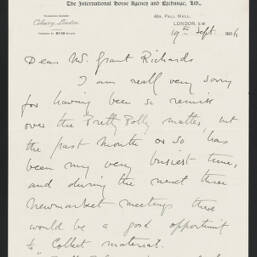 The International Horse Agency and Exchange, Ltd.,
Pall Mall,
LONDON, S.W.
19th Sept. 
Dear Mr. Grant Richards
I am really very sorry
for having been so remiss
over the Pretty Polly matter, but
the past month or so has
been my very busiest time,
and during the next three
Newmarket meetings there
would be a good opportunity
to collect material.